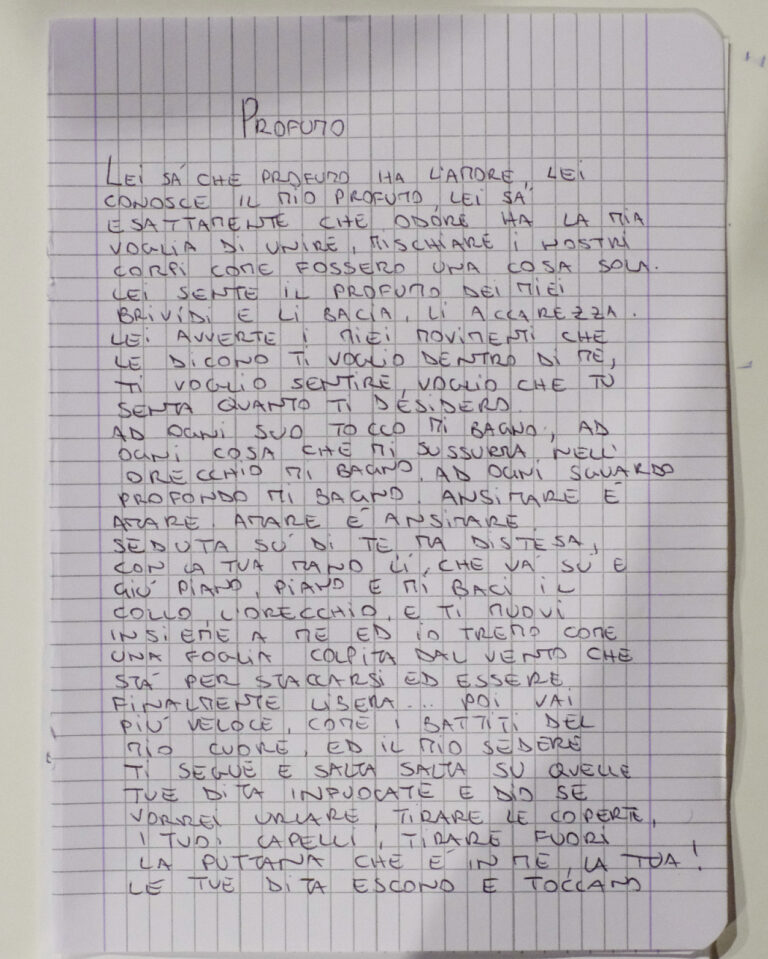 PROFUMO
LEI SA' CHE PROFUMO HA L'AMORE, LEI
CONOSCE IL MIO PROFUMO, LEI SA'
ESATTAMENTE CHE ODORE HA LA MIA
VOGLIA DI UNIRE, MISCHIARE I NOSTRI
CORPI COME FOSSERO UNA COSA SOLA.
LEI SENTE IL PROFUMO DEI MIEI
BRIVIDI E LI BACIA, LI ACCAREZZA.
LEI AVVERTE I MIEI MOVIMENTI CHE
LE DICONO TI VOGLIO DENTRO DI ME,
TI VOGLIO SENTIRE, VOGLIO CHE TU
SENTA QUANTO TI DESIDERO.
AD OGNI SUO TOCCO MI BAGNO, AD
OGNI COSA CHE MI SUSSURRA NELL'
ORECCHIO MI BAGNO, AD OGNI SGUARDO
PROFONDO MI BAGNO. ANSIMARE E'
AMARE, AMARE E' ANSIMARE.
SEDUTA SU DI TE MA DISTESA,
CON LA TUA MANO LI', CHE VA SU E
GIU' PIANO, PIANO E MI BACI IL
COLLO, L'ORECCHIO, E TI MUOVI
INSIEME A ME ED IO TREMO COME
UNA FOGLIA COLPITA DAL VENTO CHE
STA' PER STACCARSI ED ESSERE
FINALMENTE LIBERA... POI VAI
PIU' VELOCE, COME I BATTITI DEL
MIO CUORE, ED IL MIO SEDERE
TI SEGUE E SALTA SALTA SU QUELLE
TUE DITA INFUOCATE E DIO SE
VORREI URLARE, TIRARE LE COPERTE,
I TUOI CAPELLI, TIRARE FUORI
LA PUTTANA CHE E' IN ME, LA TUA!
LE TUE DITA ESCONO E TOCCANO